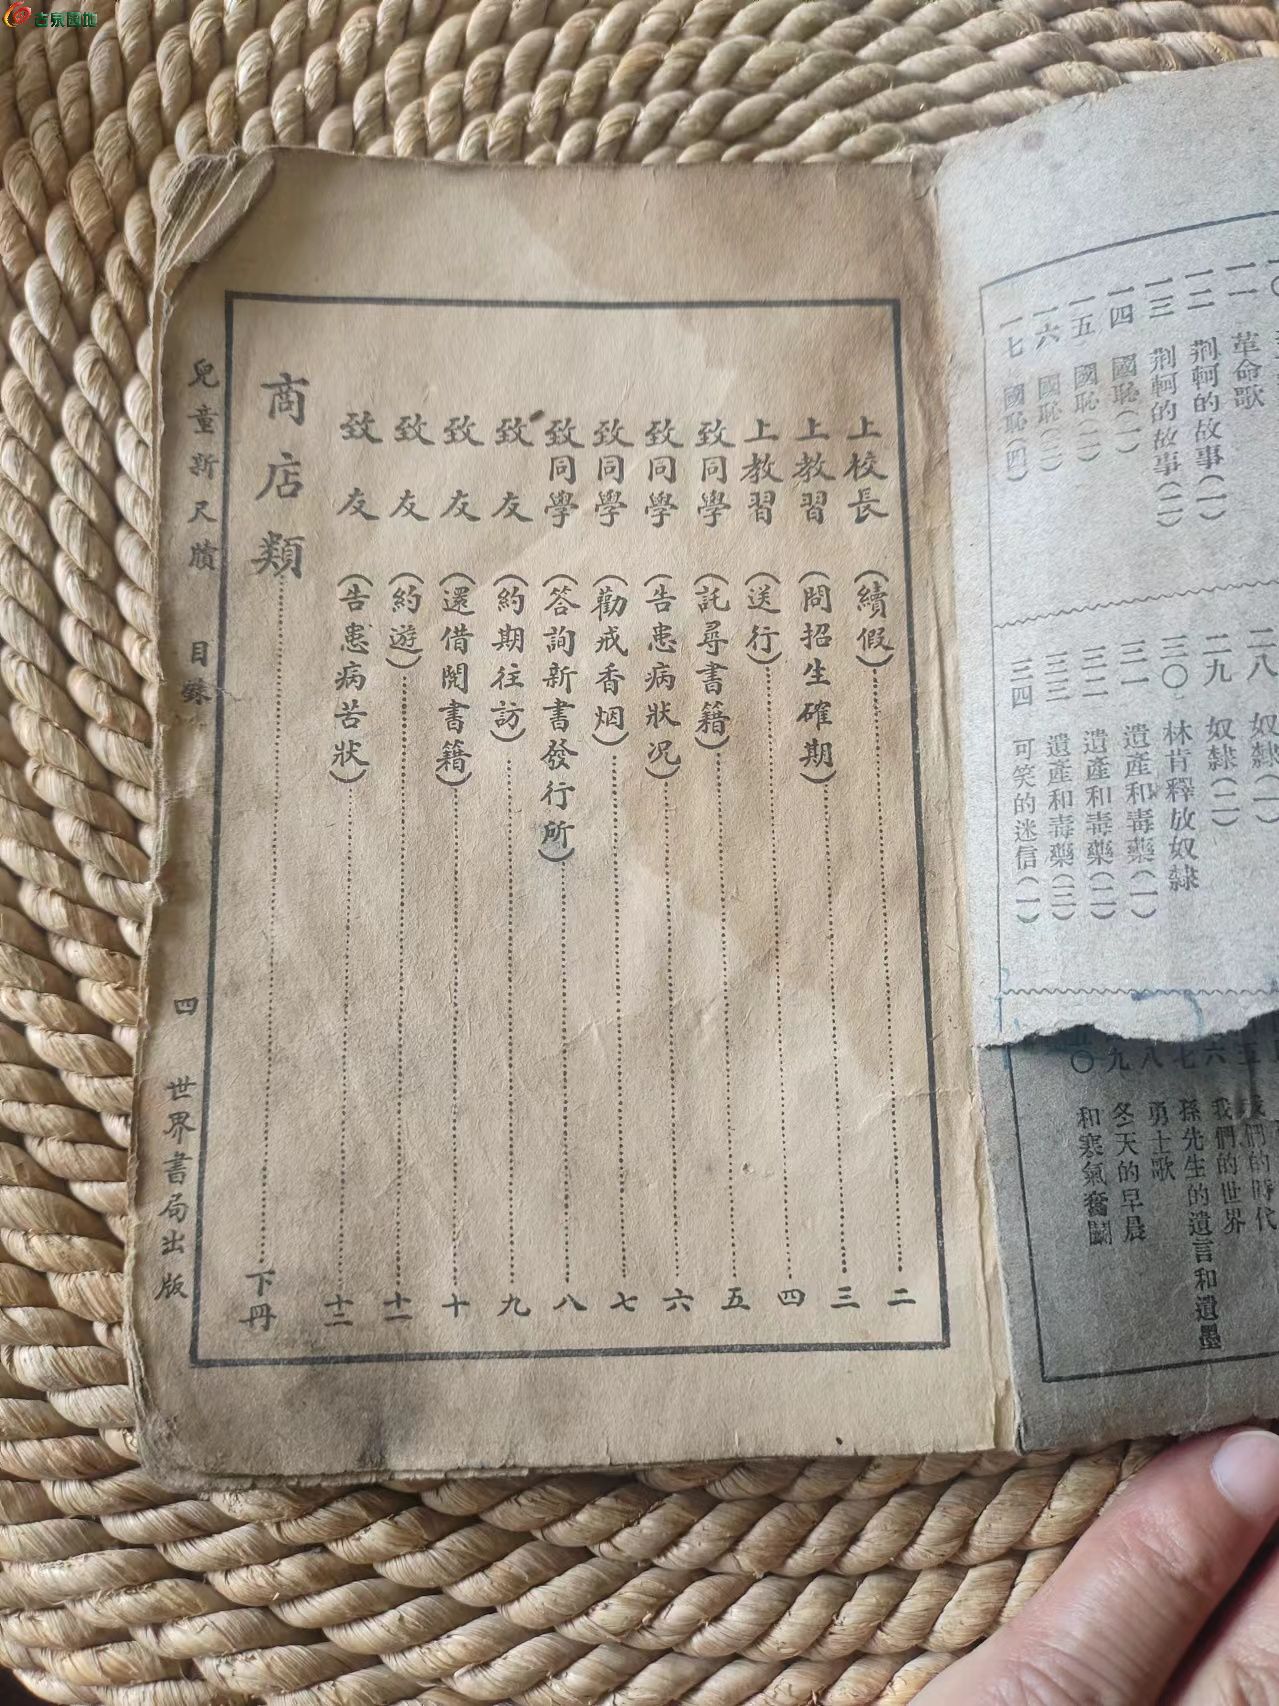 古泉園地
一一 革命歌
一二 荆軻的故事(一)
一三 荆軻的故事(二)
一四 國恥(一)
一五 國恥(二)
一六 國恥(三)
一七 國恥(四)
二八 奴隸(一)
二九 奴隸(二)
三〇 林肯釋放奴隸
三一 遺產和毒藥(一)
三二 遺產和毒藥(二)
三三 遺產和毒藥(三)
三四 可笑的迷信(一)
我們的時代
我們的世界
孫先生的遺言和遺墨
勇士歌
冬天的早晨
和寒氣奮鬭
上校長(續假)二
上教習(問招生確期)三
上教習(送行)四
致同學(託尋書籍)五
致同學(告患病狀況)六
致同學(勸戒香烟)七
致同學(答詢新書發行所)八
致友(約期往訪)九
致友(還借閱書籍)十
致友(約遊)十一
致友(告患病苦狀)十二
商店類 下冊
兒童新尺牘 目錄 四 世界書局出版